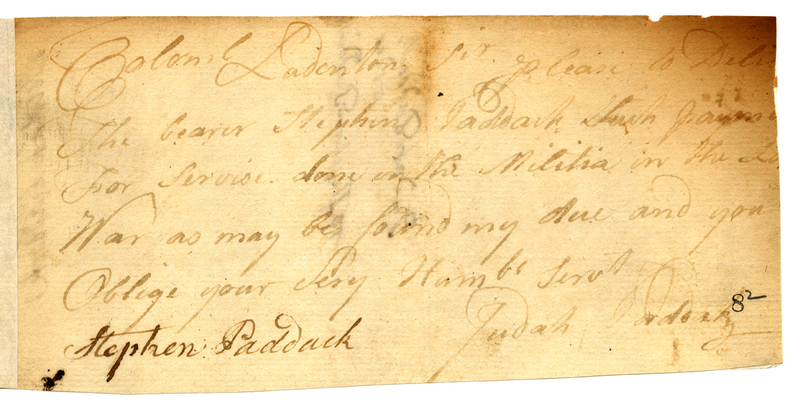 Colonel Ludenton Sir please to Deli
The bearer Stephen Paddack Such payme
For Service done in the Militia in the La
War as may be found my due and you
Oblige your Very Humbe Servt
Judah Padock
Stephen Paddack
82